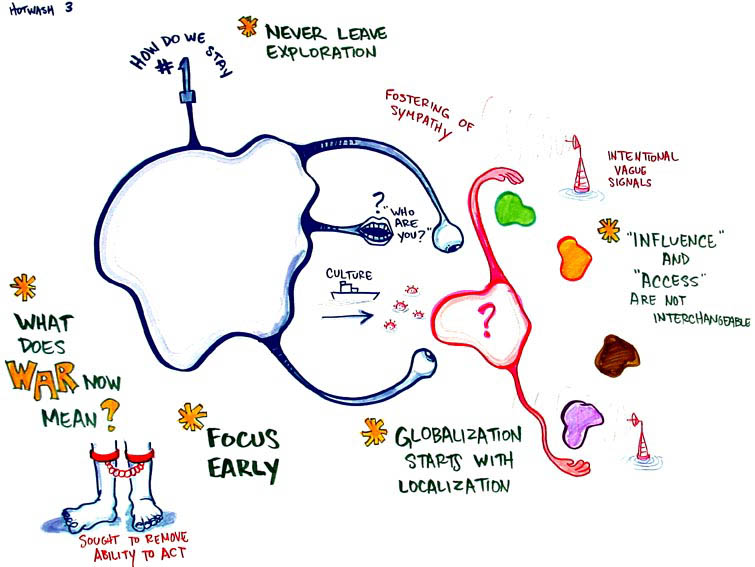 HOTWASH 3
HOW DO WE STAY
#1
NEVER LEAVE
EXPLORATION
FOSTERING OF
SYMPATHY
INTENTIONAL
VAGUE
SIGNALS
?
"WHO
ARE
YOU?"
"INFLUENCE"
AND
"ACCESS"
ARE NOT
INTERCHANGEABLE
CULTURE
?
WHAT
DOES
WAR NOW
MEAN?
FOCUS
EARLY
GLOBALIZATION
STARTS WITH
LOCALIZATION
SOUGHT TO REMOVE
ABILITY TO ACT